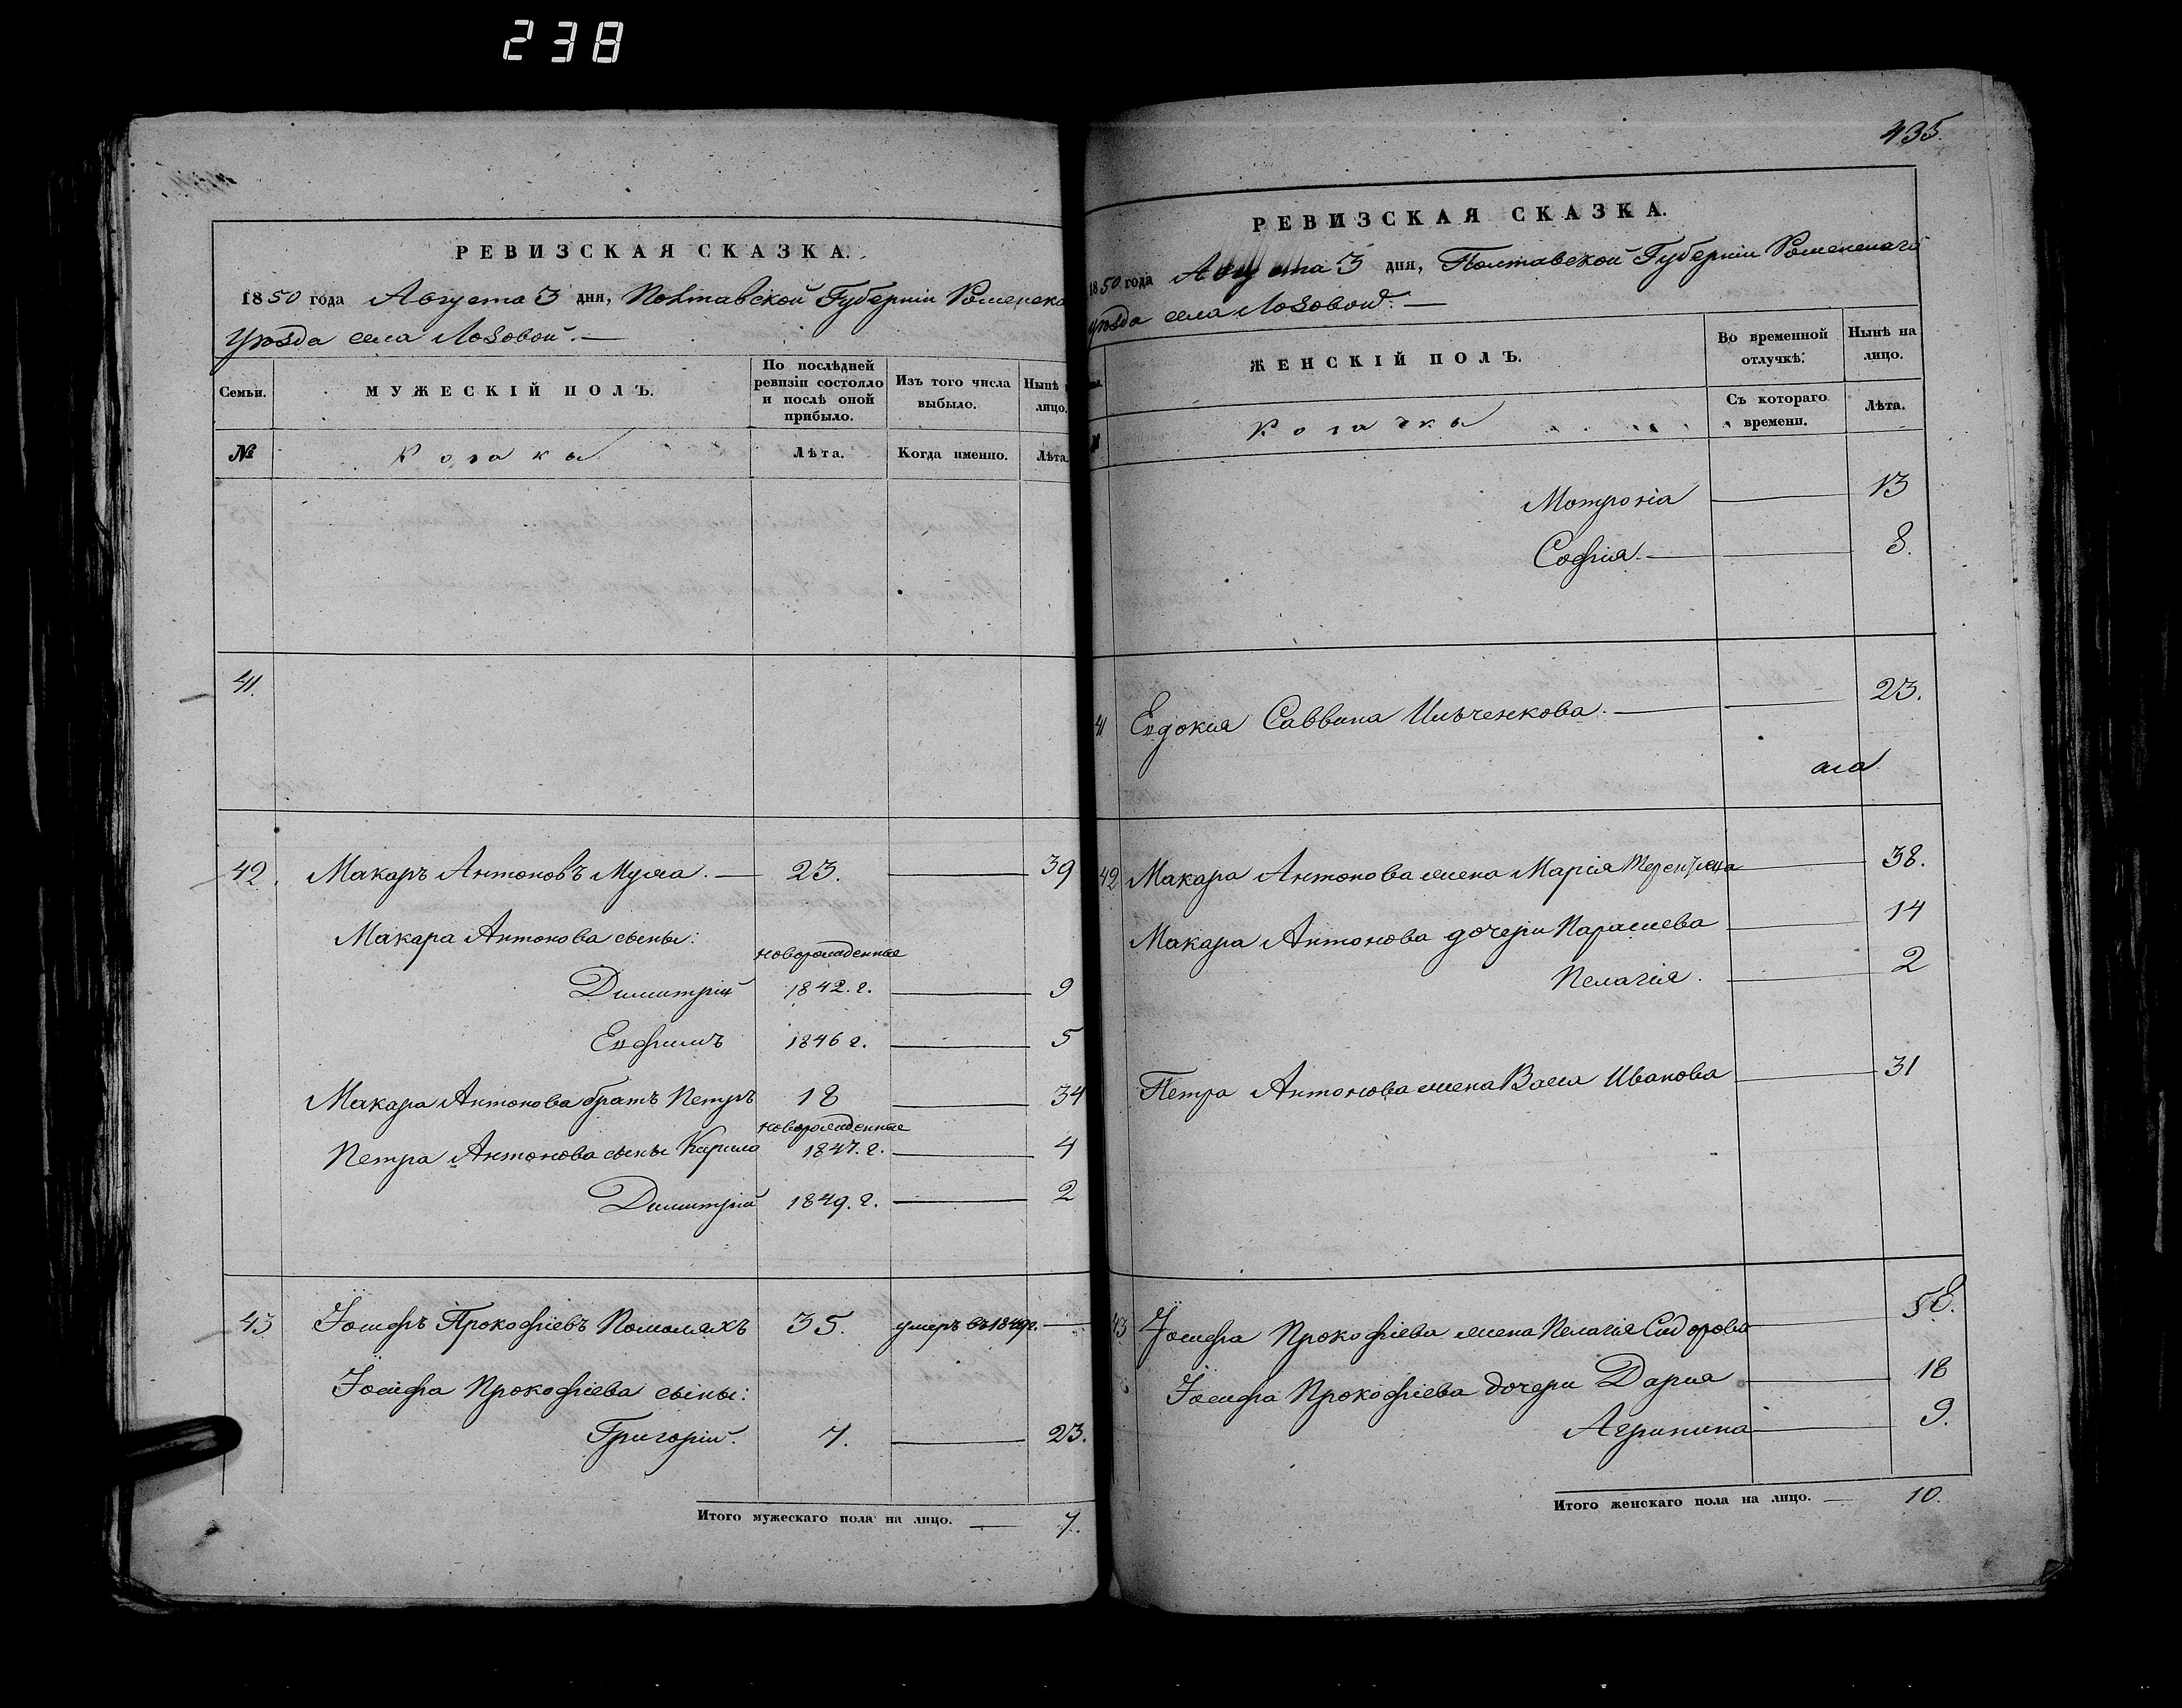 238
РЕВИЗСКАЯ СКАЗКА.
1850 года Августа 3 дня, Полтавской Губерніи Роменска
Уѣзда села Лозовой. —
Семьи.
МУЖЕСКІЙ ПОЛЪ.
По послѣдней ревизіи состояло и послѣ оной прибыло.
Изъ того числа выбыло.
Нынѣ
лицо.
№
Козаки
Лѣта.
Когда именно.
Лѣта.
41.
42. Макаръ Антоновъ — 23. — 39
Макара Антонова сыны:
новорожденные
Димитрій 1842. г. — 9
Евфимъ 1846 г. — 5
Макара Антонова братъ Петръ 18 — 34
новорожденные
Петра Антонова сыны Кирило 1847. г. — 4
Димитрій 1849. г. — 2
43 Іосифъ Прокофіевъ 35. умеръ въ 1849г. —
Іосифа Прокофіева сыны:
Григорій. 7. — 23.
Итого мужескаго пола на лицо. — 7.
435.
РЕВИЗСКАЯ СКАЗКА.
1850 года Августа 3 дня, Полтавской Губерніи Роменскаго
уѣзда села Лозовой. —
ЖЕНСКІЙ ПОЛЪ.
Во временной отлучкѣ.
Нынѣ на лицо.
Козачки
Съ котораго времени.
Лѣта.
Мотронія — 13
Софія. — 8.
41 Евдокія Саввина Ильченкова. — 23.
42 Макара Антонова жена Марія Терентіева — 38.
Макара Антонова дочери Параскева — 14
Пелагія. — 2
Петра Антонова жена Васса Иванова — 31
43 Іосифа Прокофіева жена Пелагія Сидорова — 58.
Іосифа Прокофіева дочери Дарія — 18
Агрипина — 9.
Итого женскаго пола на лицо. — 10.